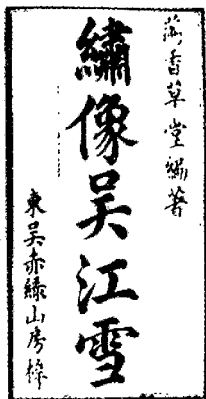 蘅香草堂編著
繡像吳江雪
東吳赤綠山房梓